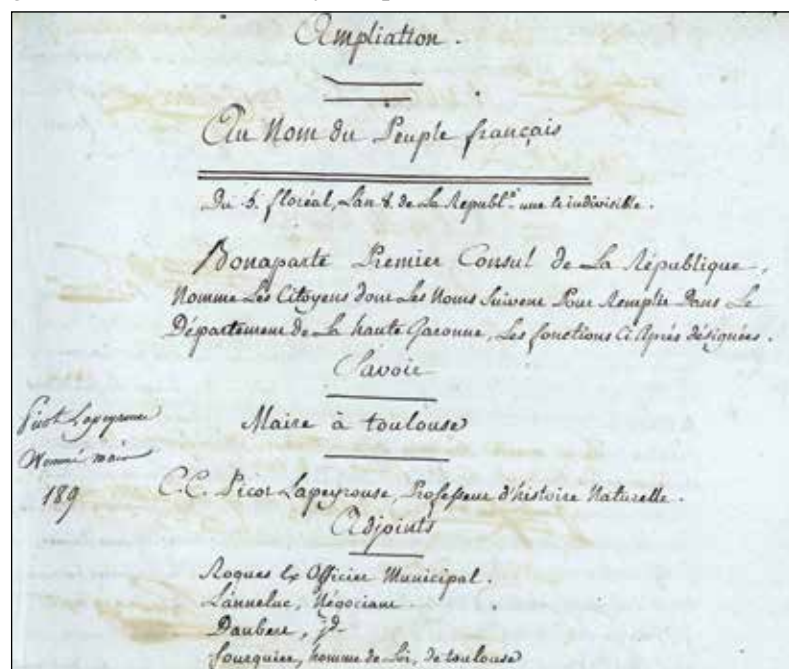 Ampliation.
Au Nom du Peuple français
Du 5. floréal, L'an 8. de La Republ.e une et indivisible.
Bonaparte Premier Consul de La République,
Nomme Les Citoyens dont Les Noms Suivent Pour Remplir Dans Le
Département de La haute Garonne, Les fonctions Ci Après désignées.
Savoir
Maire à toulouse
Picot Lapeyrouse
Nommé maire
189
C.C. Picot Lapeyrouse, Professeur d'histoire Naturelle.
Adjoints
Roques Ex Officier Municipal.
Lanneluc, Négociant.
Daubert, jd.
fourquier, homme de Loi, de toulouse